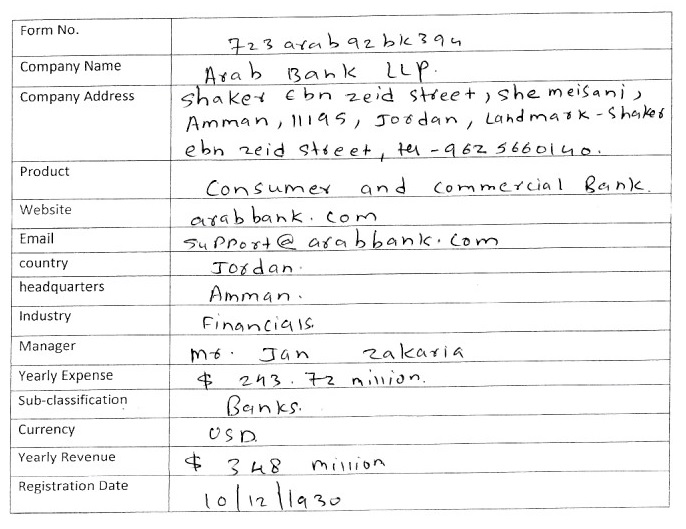 Form No. 723arab92bk394
Company Name Arab Bank LLP.
Company Address shaker Ebn zeid street, shemeisani,
Amman, 11195, Jordan, Landmark-Shaker
ebn zeid street, tel-962 5660140.
Product Consumer and commercial Bank.
Website arabbank.com
Email support@arabbank.com
country Jordan.
headquarters Amman.
Industry Financials.
Manager Mr. Jan Zakaria
Yearly Expense $ 243.72 million.
Sub-classification Banks.
Currency USD.
Yearly Revenue $ 348 million
Registration Date 10/12/1930